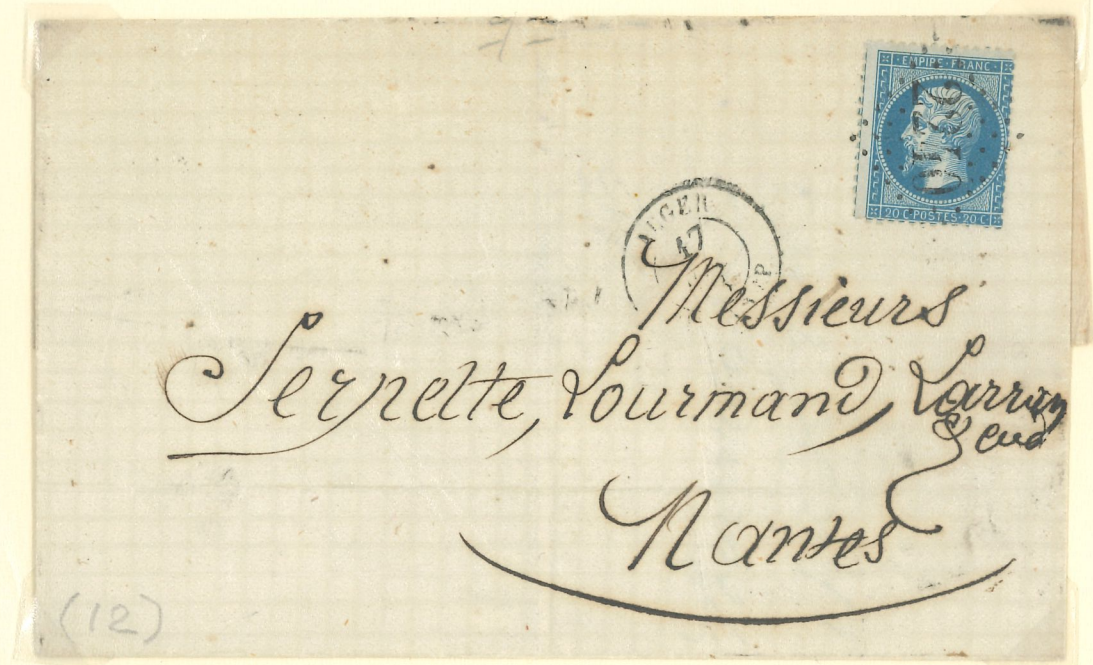 EMPIRE FRANC
20 C · POSTES · 20 C
ALGER
17
Messieurs
Serpette, Lourmand, Larray
Nantes
(12)